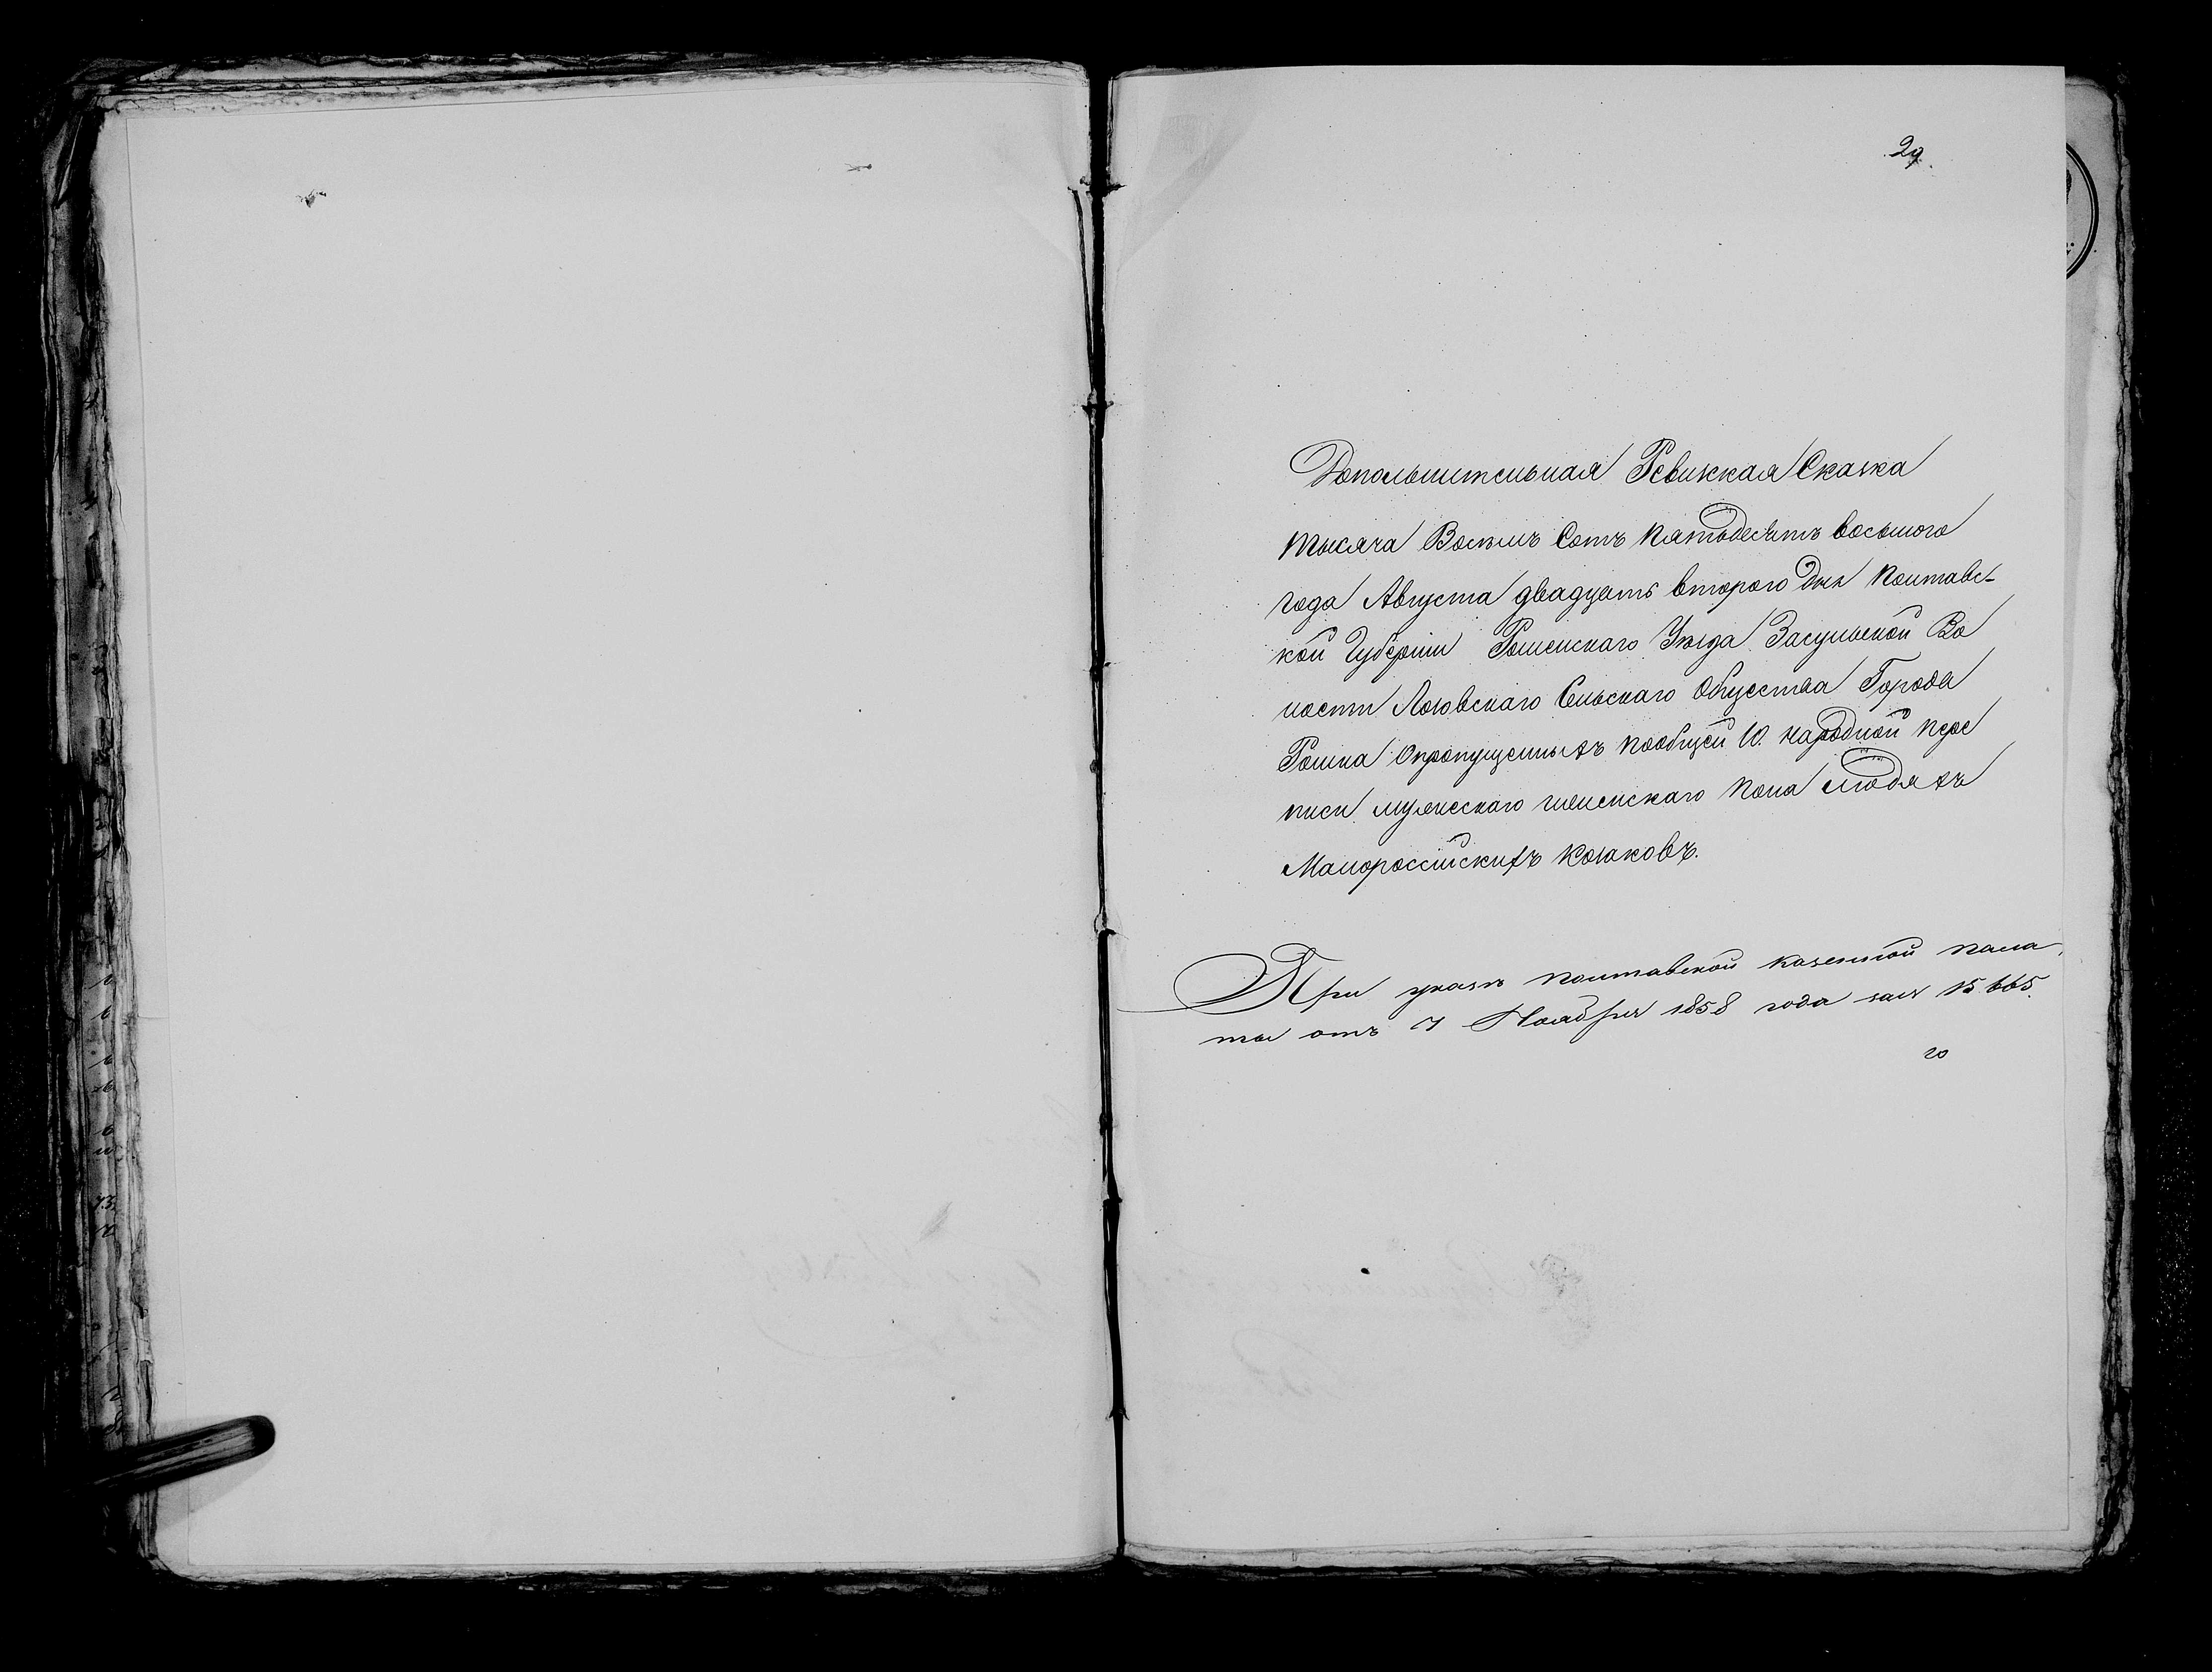 29.
Дополнительная Ревизкая Сказка
тысяча Восемь Сотъ пятьдесятъ восьмого
года Августа двадцать второго дня Полтавс-
кой Губерніи Роменскаго Уезда Засульской Во
лости Лозовскаго Сельскаго Общества Города
Ромна Опропущенныхъ пообщей 10. народной пере
писи мужескаго иженскаго пола людяхъ
Малороссійскихъ козаковъ.
При указе Полтавской казенной пала
ты отъ 7 Ноября 1858 года за № 15665.
го